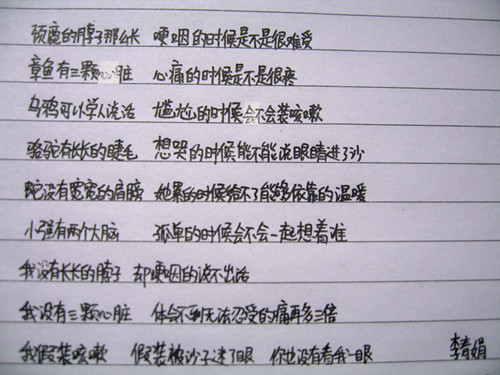 颈鹿的脖子那么长 哽咽的时候是不是很难受
章鱼有三颗心脏 心痛的时候是不是很疼
乌鸦可以学人说话 尴尬的时候会不会装咳嗽
骆驼有长长的睫毛 想哭的时候能不能说眼睛进了沙
蛇没有宽宽的肩膀 她累的时候给不了能够依靠的温暖
小强有两个大脑 孤单的时候会不会一起想着谁
我没有长长的脖子 却哽咽的说不出话
我没有三颗心脏 体会不到无法忍受的痛再多三倍
我假装咳嗽 假装被沙子进了眼 你也没有看我一眼 李青娟